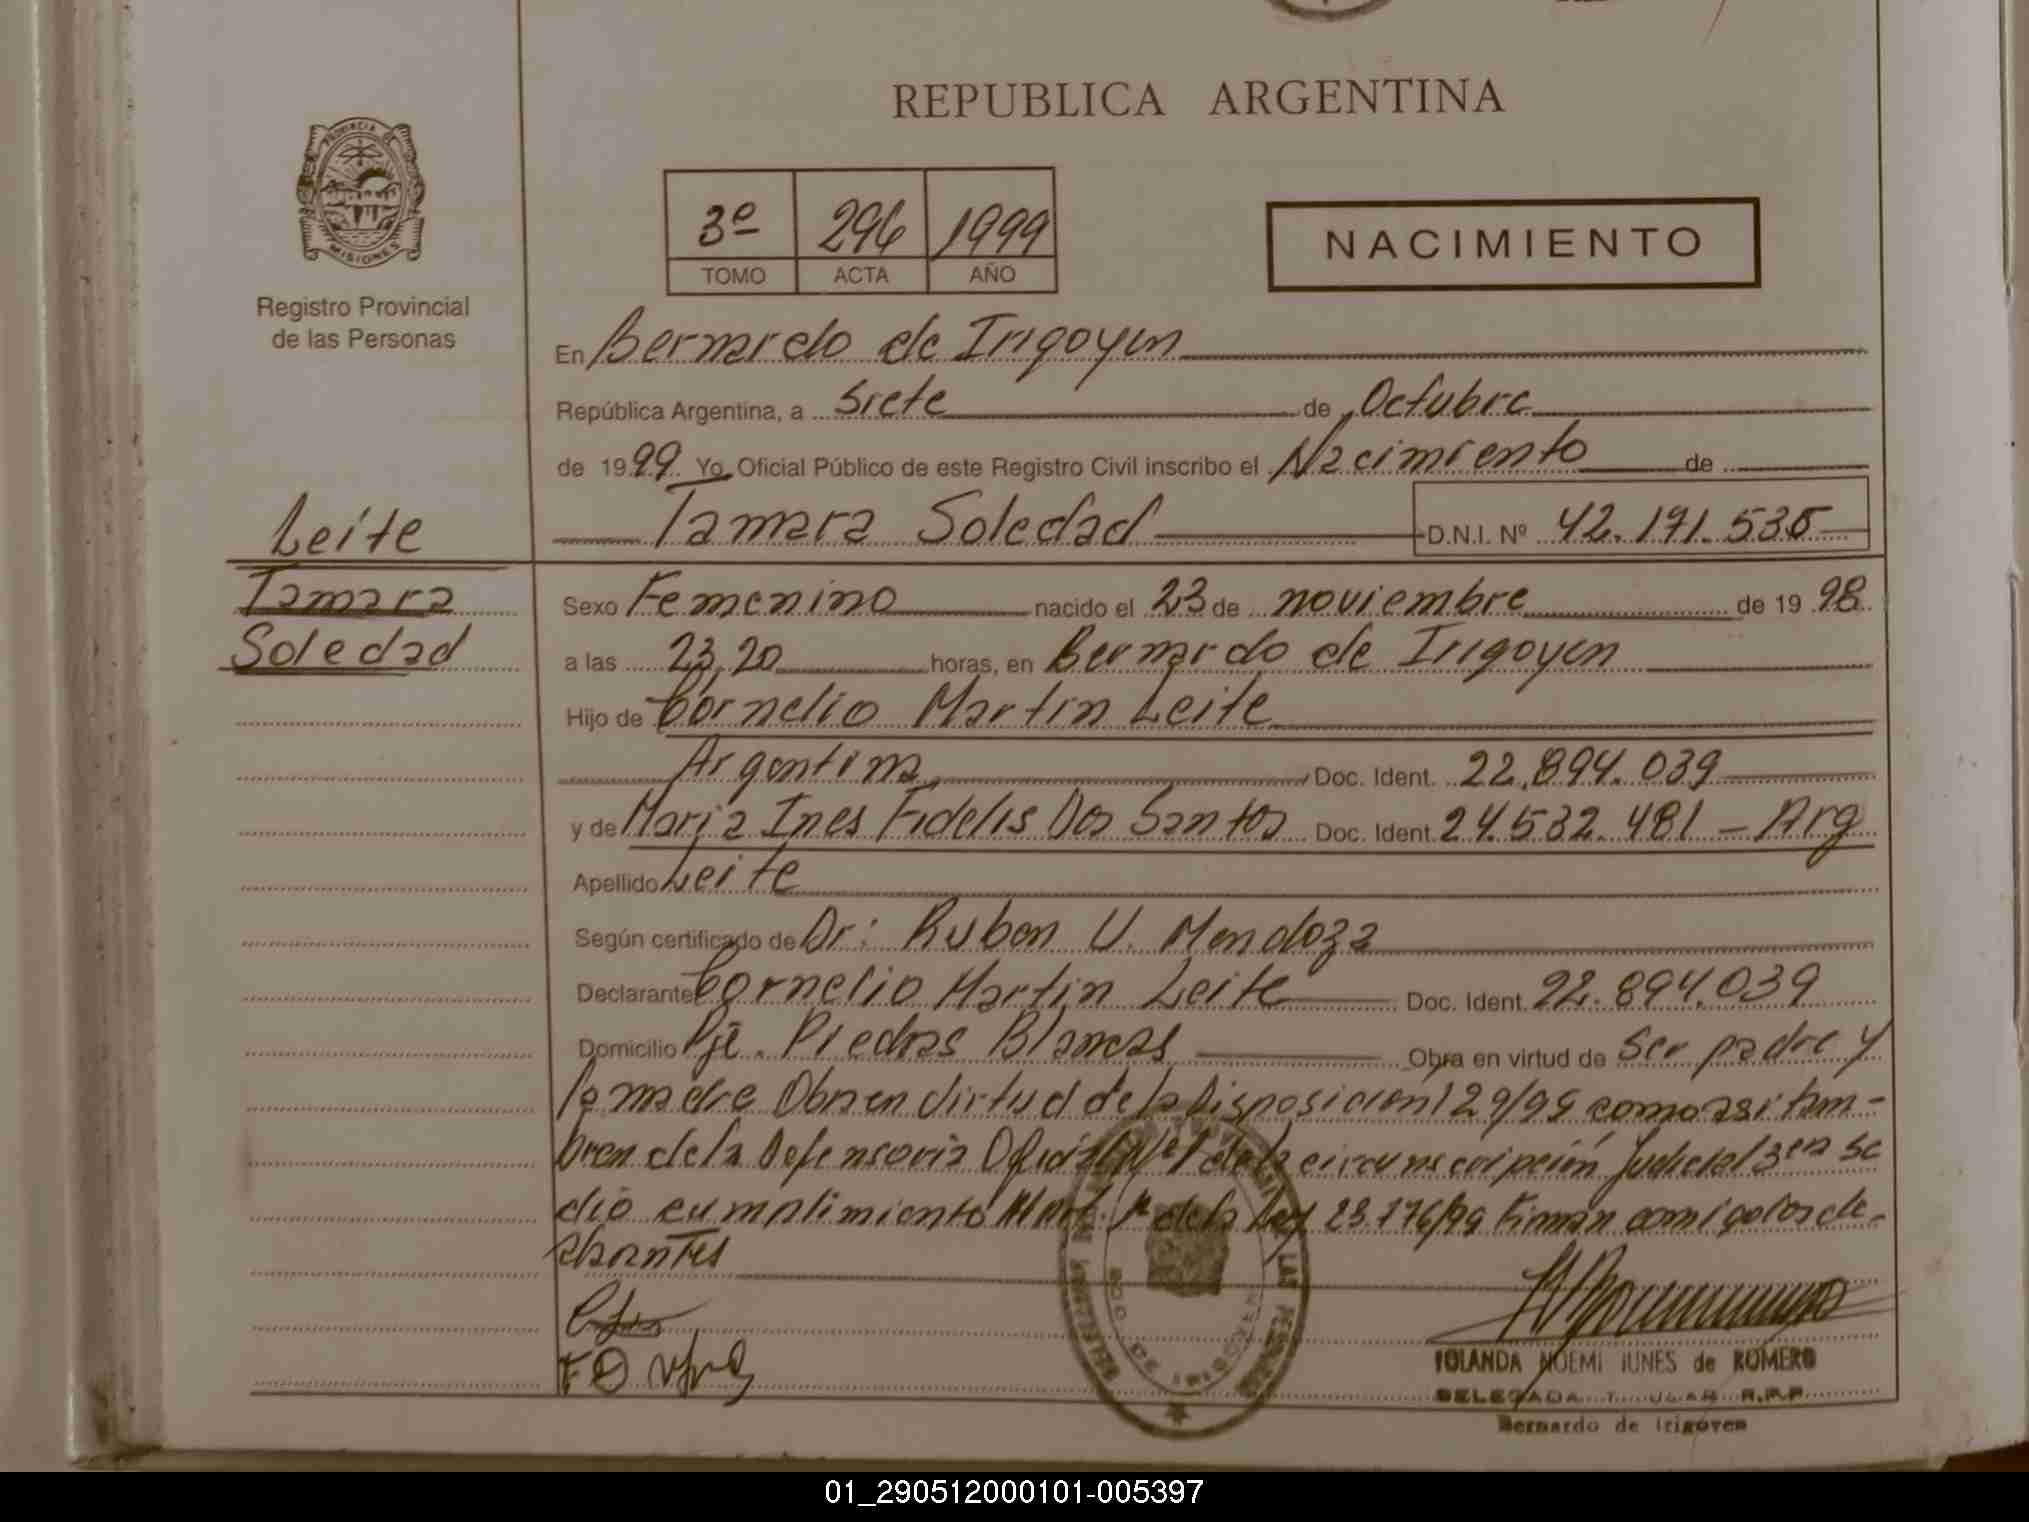 REPUBLICA ARGENTINA
PROVINCIA DE
MISIONES
Registro Provincial
de las Personas
3º 296 1999
TOMO ACTA AÑO
NACIMIENTO
En Bernardo de Irigoyen
República Argentina, a Siete de Octubre
de 1999 Yo Oficial Público de este Registro Civil inscribo el Nacimiento de
Tamara Soledad D.N.I. Nº 42.191.535
Leite
Tamara
Soledad
Sexo Femenino nacido el 23 de noviembre de 1998
a las 23,20 horas, en Bernardo de Irigoyen
Hijo de Cornelio Martin Leite
Argentina Doc. Ident. 22.894.039
y de Maria Ines Fidelis Dos Santos Doc. Ident. 24.532.481 - Arg
Apellido Leite
Según certificado de Dr: Ruben U. Mendoza
Declarante Cornelio Martin Leite Doc. Ident. 22.894.039
Domicilio Pje. Piedras Blancas Obra en virtud de Ser padre y
la madre Obra en Virtud de la Disposicion 129/99 como asi tam-
bien de la Defensoria Oficial de la circunscripción Judicial 3era se
dió cumplimiento Al Art. 1º de la Ley 23.776/99 Firman conmigo los de-
clarantes
YOLANDA NOEMI IUNES de ROMERO
DELEGADA TITULAR R.P.P.
Bernardo de Irigoyen
01_290512000101-005397